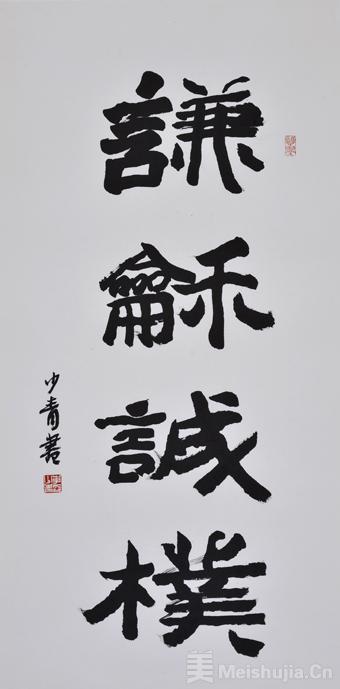 謙龢誠樸
少青書
美 Meishujia.Cn